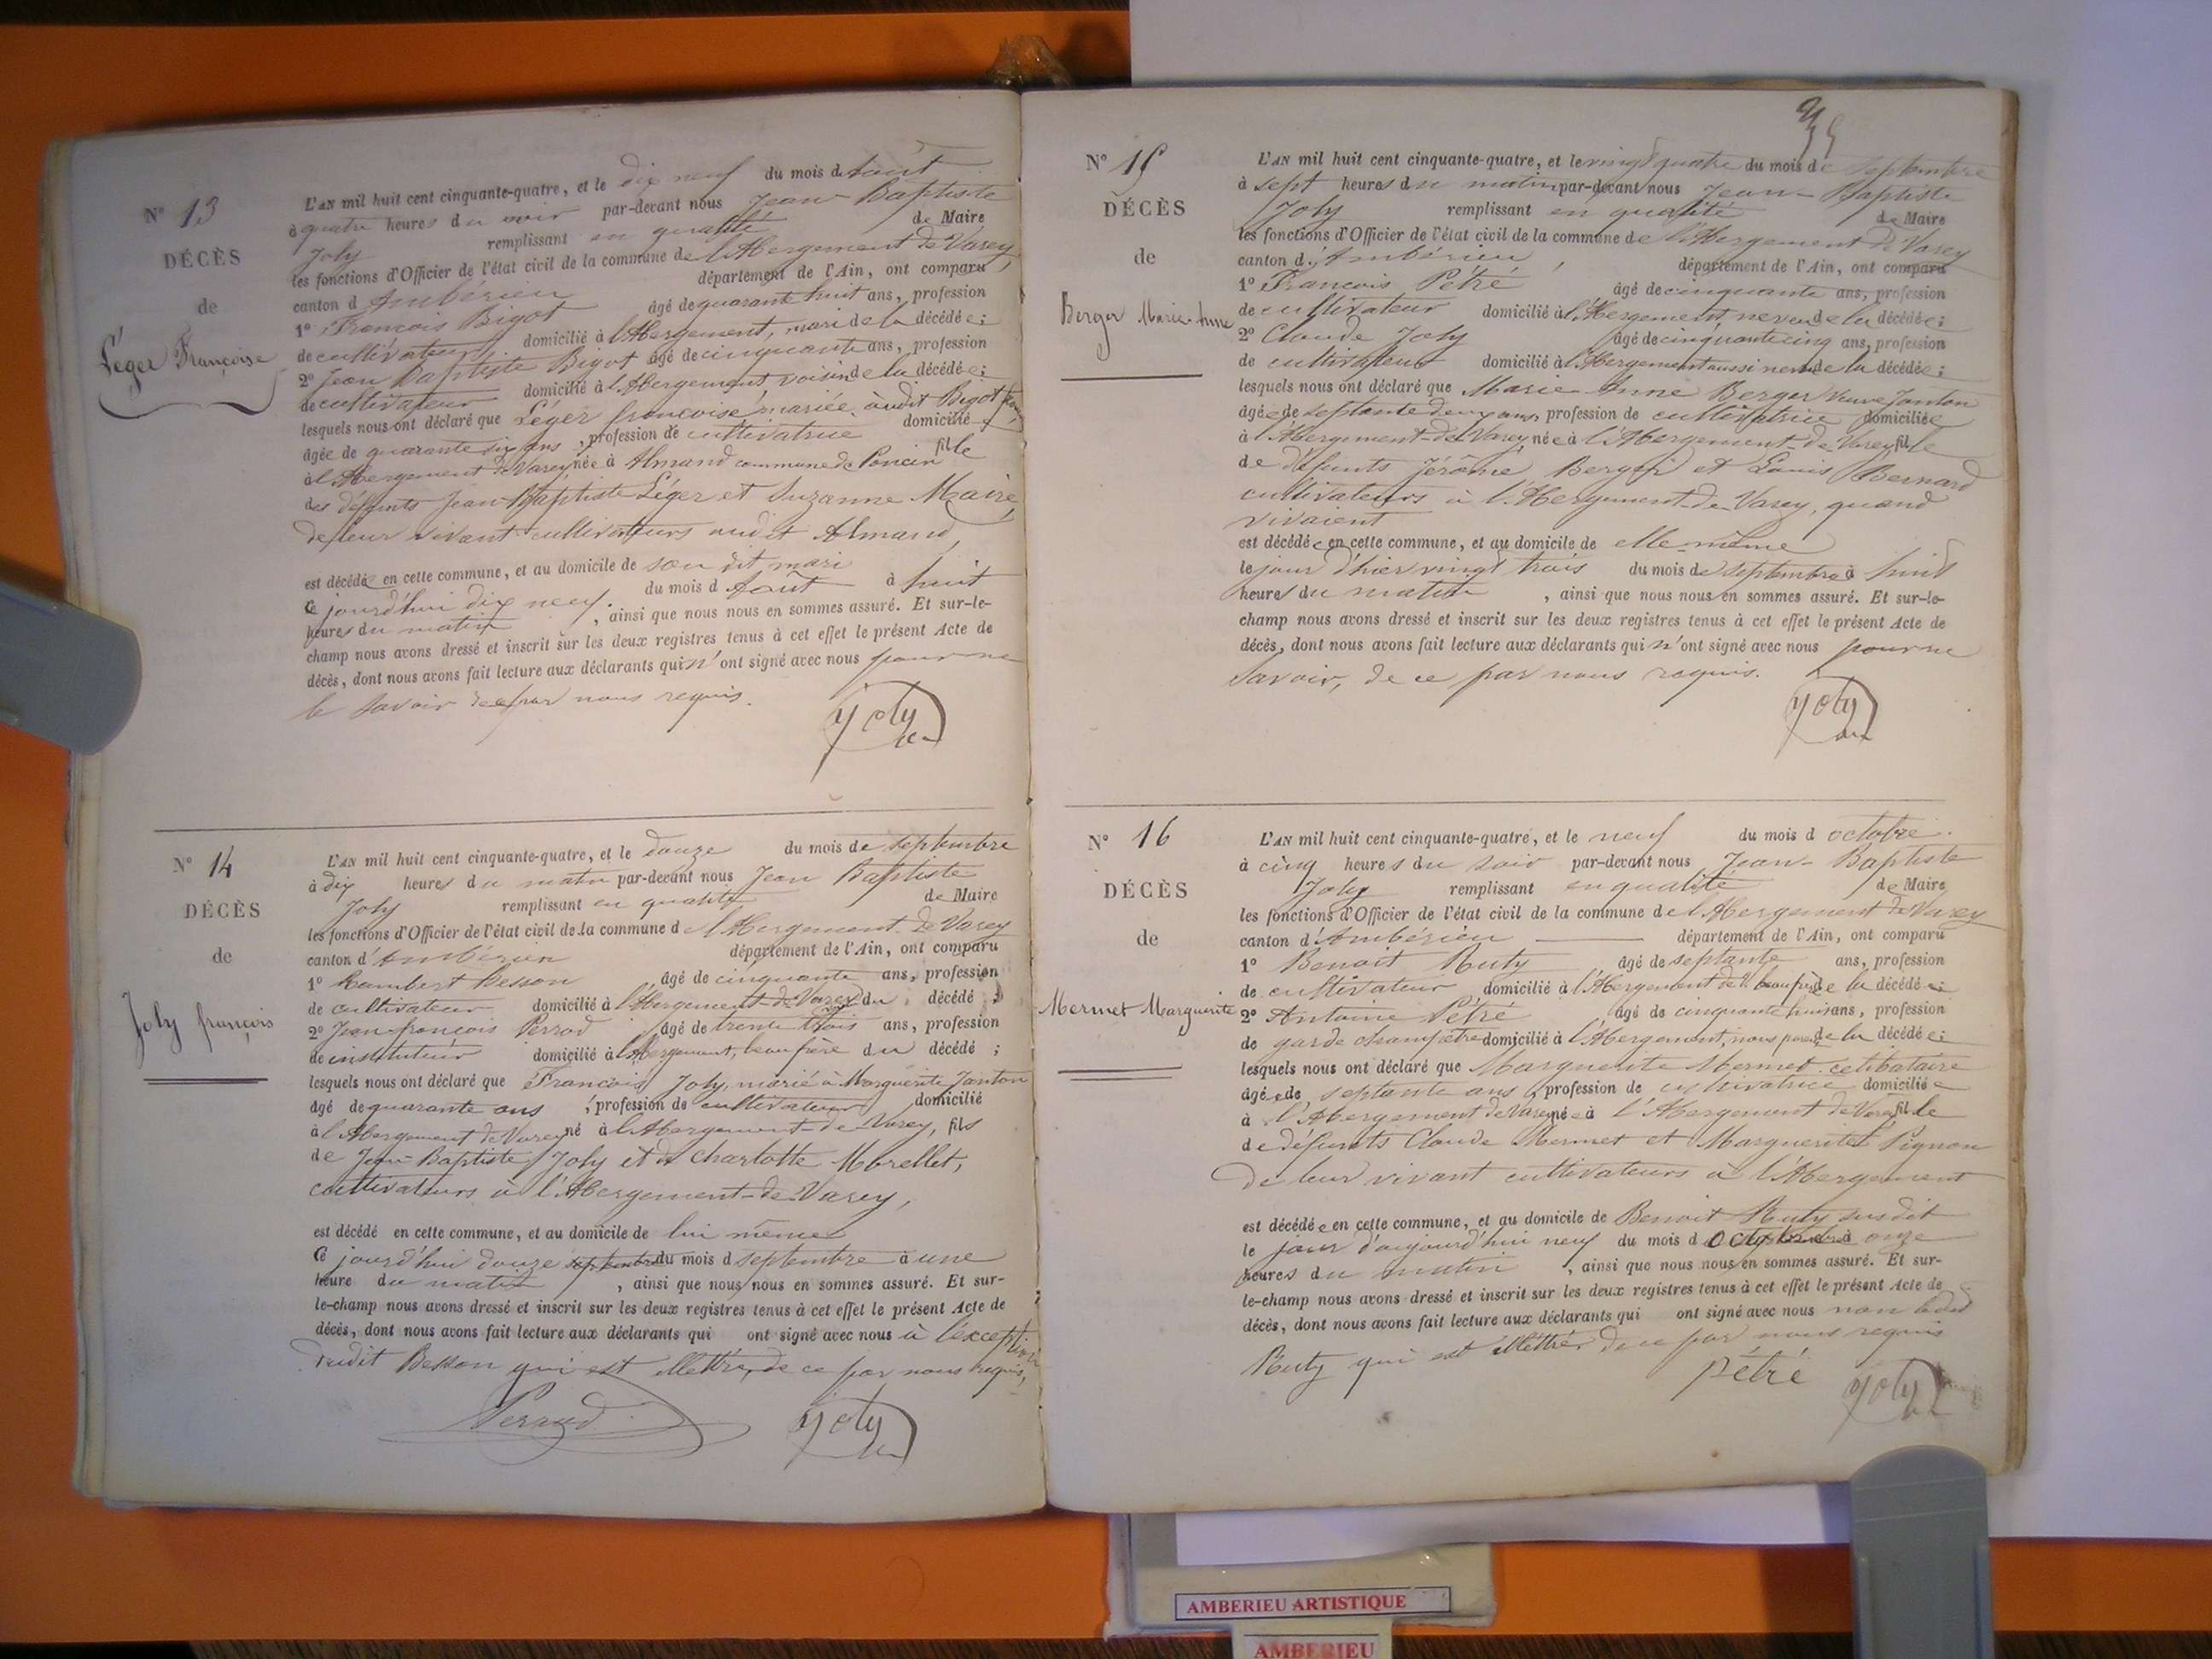 N° 13
DÉCÈS
de
Léger Françoise
L'AN mil huit cent cinquante-quatre, et le dix neuf du mois d'Août
à quatre heures du soir par-devant nous Jean-Baptiste
Joly remplissant en qualité de Maire
les fonctions d'Officier de l'état civil de la commune de l'Abergement de Varey
canton d'Ambérieu département de l'Ain, ont comparu
1° François Bigot âgé de quarante huit ans, profession
de cultivateur domicilié à l'Abergement, mari de la décédée;
2° Jean Baptiste Bigot âgé de cinquante ans, profession
de cultivateur domicilié à l'Abergement voisin de la décédée;
lesquels nous ont déclaré que Léger françoise mariée audit Bigot
âgée de quarante six ans, profession de cultivatrice domiciliée
à l'Abergement de Varey née à Almand commune de Poncin fille
des défunts Jean-Baptiste Léger et Suzanne Maire,
de leur vivant cultivateurs audit Almand,
est décédée en cette commune, et au domicile de son dit mari
Ce jourd'hui dix neuf du mois d'Août à huit
heures du matin, ainsi que nous nous en sommes assuré. Et sur-le-
champ nous avons dressé et inscrit sur les deux registres tenus à cet effet le présent Acte de
décès, dont nous avons fait lecture aux déclarants qui n'ont signé avec nous pour ne
le savoir de ce par nous requis.
Joly
N° 14
DÉCÈS
de
Joly françois
L'AN mil huit cent cinquante-quatre, et le douze du mois de septembre
à dix heures du matin par-devant nous Jean Baptiste
Joly remplissant en qualité de Maire
les fonctions d'Officier de l'état civil de la commune de l'Abergement de Varey
canton d'Ambérieu département de l'Ain, ont comparu
1° Rambert Besson âgé de cinquante ans, profession
de cultivateur domicilié à l'Abergement de Varey du décédé;
2° Jean-françois Perrod âgé de trente trois ans, profession
de instituteur domicilié à l'Abergement, beau frère du décédé;
lesquels nous ont déclaré que François Joly, marié à Marguerite Janton
âgé de quarante ans, profession de cultivateur domicilié
à l'Abergement de Varey né à l'Abergement de Varey, fils
de Jean-Baptiste Joly et de Charlotte Morellet,
cultivateurs à l'Abergement-de-Varey,
est décédé en cette commune, et au domicile de lui même
Ce jourd'hui douze septembre du mois de septembre à une
heure du matin, ainsi que nous nous en sommes assuré. Et sur-
le-champ nous avons dressé et inscrit sur les deux registres tenus à cet effet le présent Acte de
décès, dont nous avons fait lecture aux déclarants qui ont signé avec nous à l'exception
dudit Besson qui est illettré, de ce par nous requis,
Joly
N° 15
DÉCÈS
de
Berger Marie-Anne
L'AN mil huit cent cinquante-quatre, et le vingt quatre du mois de septembre
à sept heures du matin par-devant nous Jean-Baptiste
Joly remplissant en qualité de Maire
les fonctions d'Officier de l'état civil de la commune de l'Abergement de Varey
canton d'Ambérieu, département de l'Ain, ont comparu
1° François Pétré âgé de cinquante ans, profession
de cultivateur domicilié à l'Abergement neveu de la décédée;
2° Claude Joly âgé de cinquante cinq ans, profession
de cultivateur domicilié à l'Abergement aussi neveu de la décédée;
lesquels nous ont déclaré que Marie Anne Berger Veuve Janton
âgée de septante deux ans, profession de cultivatrice domiciliée
à l'Abergement-de-Varey, née à l'Abergement-de-Varey fille
de défunts Jérôme Berger et Louis Bernard
cultivateurs à l'Abergement-de-Varey, quand
vivaient
est décédée en cette commune, et au domicile de elle-même
le jour d'hier vingt trois du mois de septembre à huit
heures du matin, ainsi que nous nous en sommes assuré. Et sur-le-
champ nous avons dressé et inscrit sur les deux registres tenus à cet effet le présent Acte de
décès, dont nous avons fait lecture aux déclarants qui n'ont signé avec nous pour ne
savoir, de ce par nous requis.
Joly
N° 16
DÉCÈS
de
Mermet Marguerite
L'AN mil huit cent cinquante-quatre, et le neuf du mois d octobre
à cinq heures du soir par-devant nous Jean-Baptiste
Joly remplissant en qualité de Maire
les fonctions d'Officier de l'état civil de la commune de l'Abergement de Varey
canton d'Ambérieu département de l'Ain, ont comparu
1° Benoit Ruty âgé de septante ans, profession
de cultivateur domicilié à l'Abergement beau frère de la décédée;
2° Antoine Pétré âgé de cinquante huit ans, profession
de garde champêtre domicilié à l'Abergement, non parent de la décédée;
lesquels nous ont déclaré que Marguerite Mermet célibataire
âgée de septante ans, profession de cultivatrice domiciliée
à l'Abergement de Varey née à l'Abergement de Varey fille
de défunts Claude Mermet et Marguerite Pignon
de leur vivant cultivateurs à l'Abergement
est décédée en cette commune, et au domicile de Benoit Ruty susdit
le jour d'aujourd'hui neuf du mois d Octobre à onze
heures du matin, ainsi que nous nous en sommes assuré. Et sur-
le-champ nous avons dressé et inscrit sur les deux registres tenus à cet effet le présent Acte de
décès, dont nous avons fait lecture aux déclarants qui ont signé avec nous non ledit
Ruty qui est illettré de ce par nous requis
Pétré Joly
AMBERIEU ARTISTIQUE
AMBERIEU